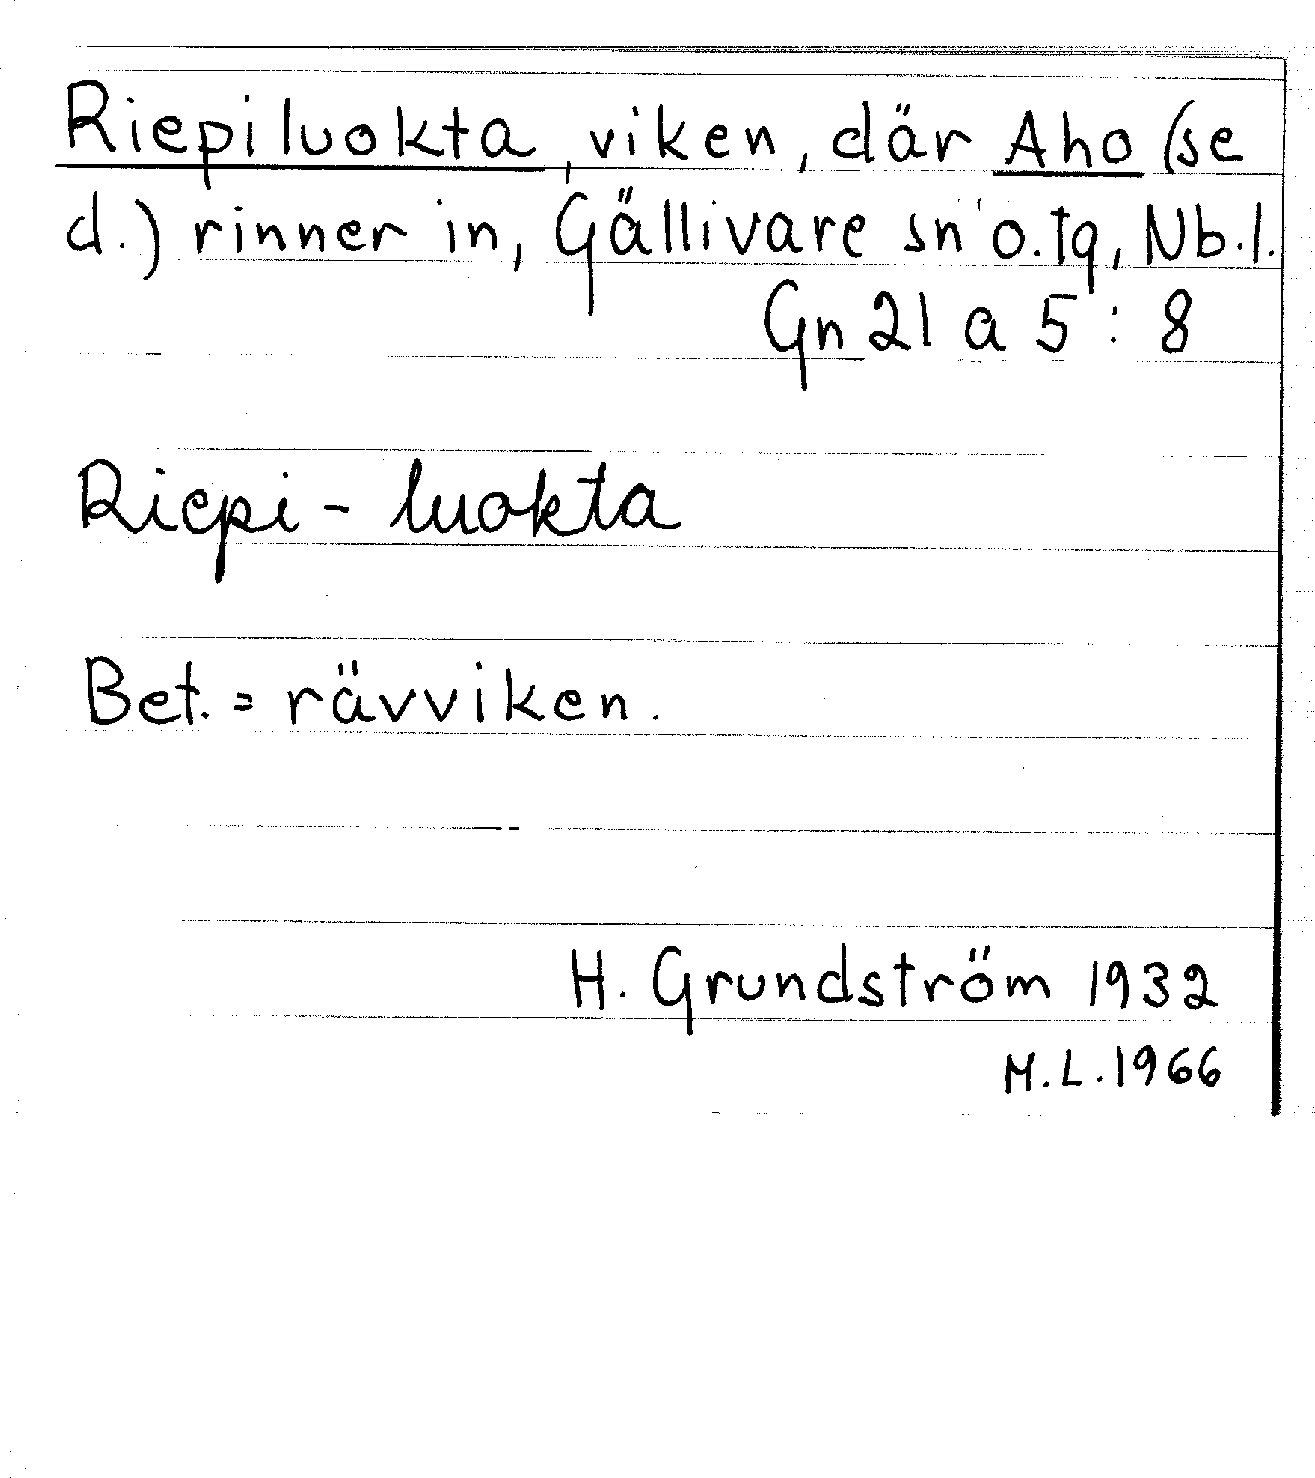 Riepiluokta, viken, där Aho (se
d.) rinner in, Gällivare sn o.tg, Nb.l.
Gn 21 a 5 : 8
Riepi - luokta
Bet. = rävviken.
H. Grundström 1932
M.L. 1966